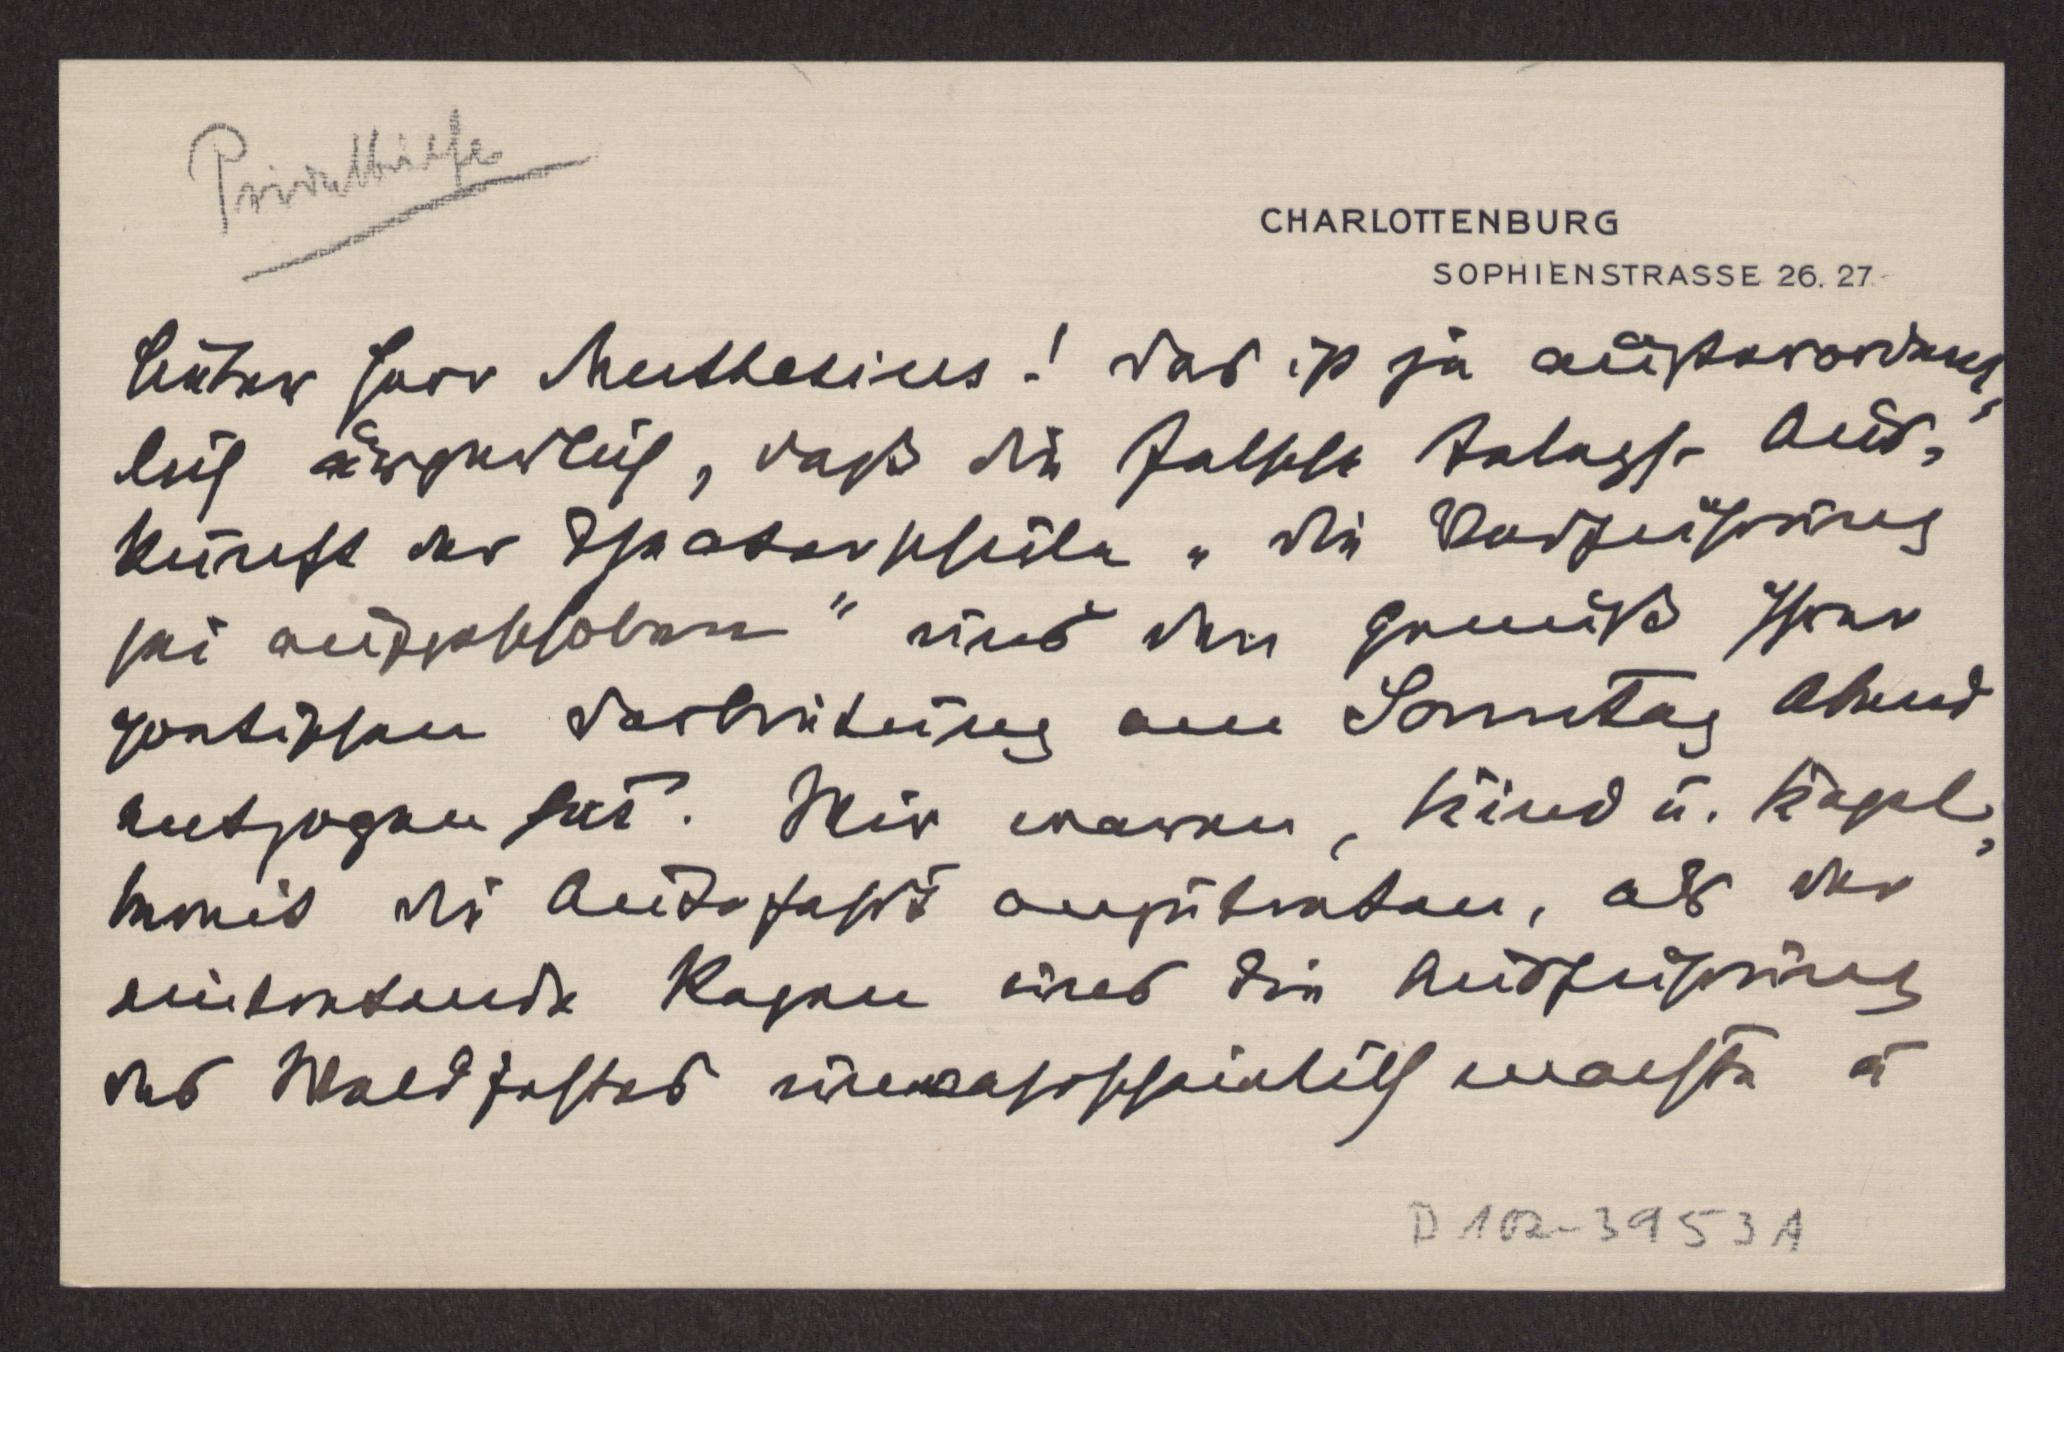 Privatbriefe
CHARLOTTENBURG
SOPHIENSTRASSE 26. 27.
Lieber Herr Muthesius! Das ist ja außerordent-
lich ärgerlich, daß die falsche Aus-
kunft der Theaterschule „die Vorführung
sei aufgeschoben" uns den Genuß Ihrer
poetischen Darbietung am Sonntag Abend
entzogen hat. Wir waren, Kind u. Kegel,
bereit die Autofahrt anzutreten, als der
eintretende Regen uns die Ausführung
des Waldfestes unwahrscheinlich machte u
D 102-3953A